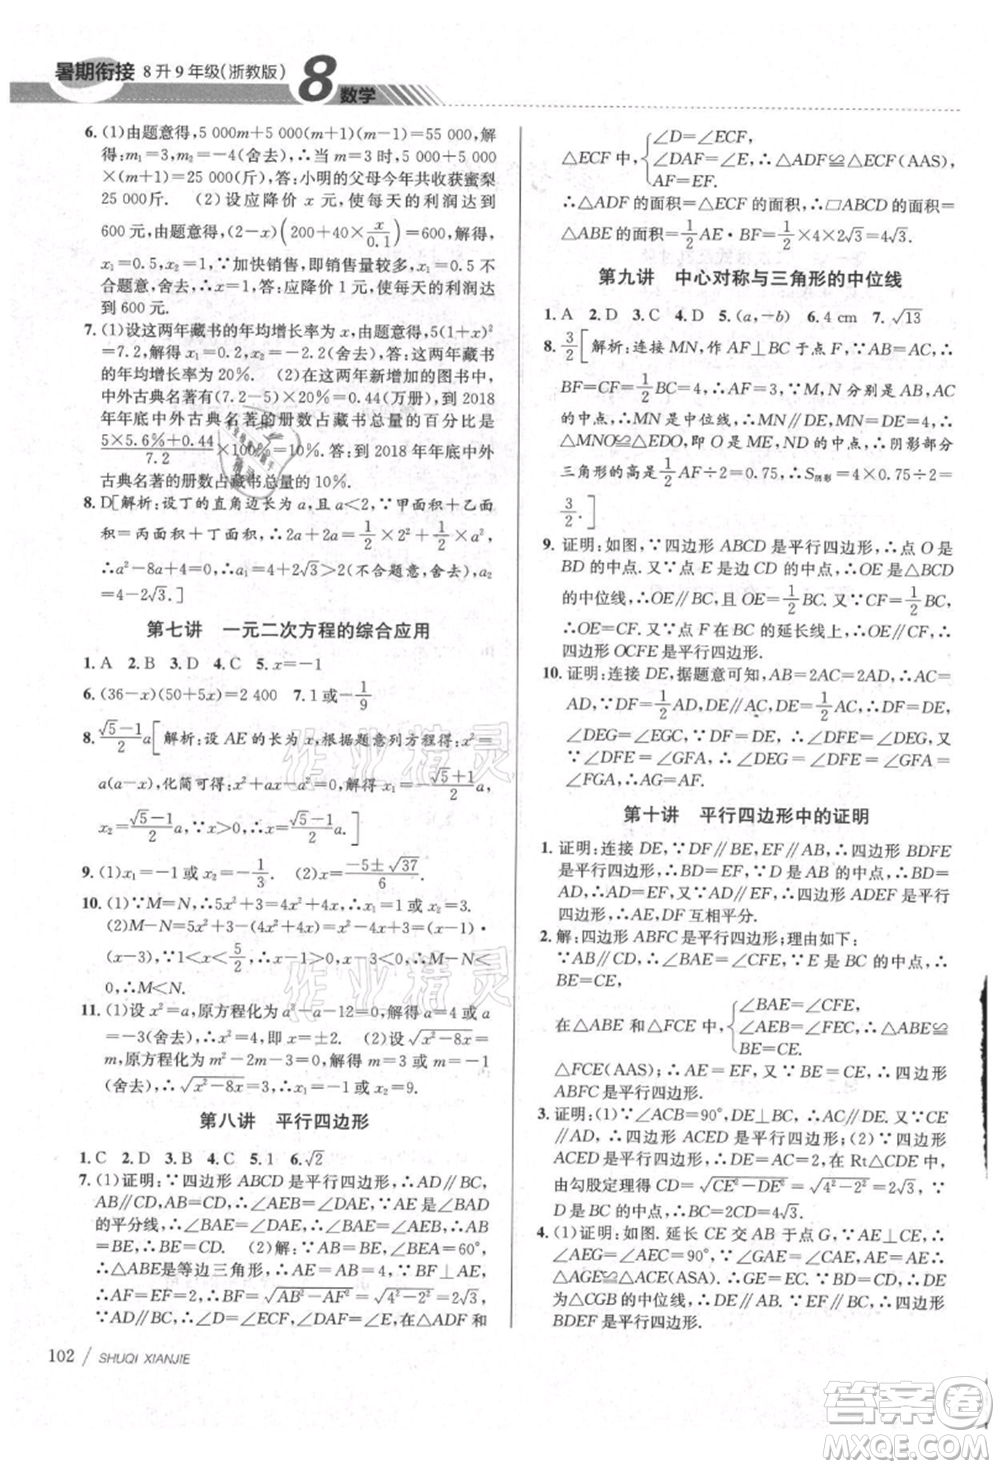 暑期衔接 8升9年级(浙教版) 8 数学
6. (1)由题意得,5 000m+5 000(m+1)m=55 000,解
得:m₁=3,m₂=-4(舍去),当m=3时,5 000m+5 000
×(m+1)m=15 000+5 000×(3+1)×3=15 000+
×(3)=75 000(斤),答:小明的父母今年共收获蜜梨
25 000斤. (2)设应降价 x 元,使每天的利润达到
600元,由题意得,(2-x)(200+40×x/0.1)=600,解得:
x₁=0.5,x₂=1,∵加快销售,∴x₁=0.5不合
题意,舍去. 答:应降价1元,使每天的利润达到600元.
7. (1)设这两年藏书的年均增长率为x,则5(1+x)²
=7.2,解得,x₁=0.2,x₂=-2.2(舍去),答:这两年藏书
的年均增长率为20%. (2)在这两年新增加的图书中,
中外古典名著有(7.2-5)×20%=0.44(万册),到2018
年年底中外古典名著的册数占藏书总量的百分比是
5×5.6%+0.44/7.2×100%=10%. 答:到2018年年底中外
古典名著的册数占藏书总量的10%.
8. D[解析:设丁的直角边长为a,∴a<2,∵甲面积+乙面
积=丙面积+丁面积,∴1/2×2²+1/2(2-a)²=4a-1/2a²,
∴a²-8a+4=0,∴a₁=4+2√3>2(不合题意,舍去),a₂
=4-2√3.]
第七讲 一元二次方程的综合应用
1. A 2. B 3. D 4. C 5. x=-1
6. (36-x)(50+5x)=2 400 7. 1或-1/9
8. √5-1/2a[解析:设AE的长为x,根据题意列方程得:x²
=a(a-x),化简得:x²+ax-a²=0,解得:x₁=-√5+1/2a,
x₂=√5-1/2a,∵x>0,∴x=√5-1/2a.]
9. (1)x₁=2或x₂=-1/3 (2)x=-5±√37/6
10. (1)∵M=N,∴5x²+3=4x²+2x,解得:x₁=1,x₂=3.
(2)M-N=5x²+3-(4x²+2x)=5x²+3-4x²
(x-1)(x-3),∵1<x<5/2,∴x-1>0,x-3<0,∴M-N<
0,∴M<N.
11. (1)设x²=a,原方程化为a²-a-12=0,解得a=-3
(舍去),a=4,即x²=4,∴x=±2. (2)设√x²-8x=m,
原方程化为m²-2m-3=0,解得:m₁=3,m₂=-1
(舍去),∴√x²-8x=3,解得:x=-1或x=9.
第八讲 平行四边形
1. C 2. D 3. D 4. C 5. 1 6. √2
7. (1)证明:∵四边形ABCD是平行四边形,∴AD∥BC,
AB∥CD,AB=CD,∴∠AEB=∠DAE,∵AE是∠BAD
的平分线,∴∠BAE=∠DAE,∴∠BAE=∠AEB,∴
AB=BE,∴BE=CD. (2)解:∵AB=BE,∠BEA=60°,
∴△ABE是等边三角形,∴AE=AB=4,∵BF⊥AE,
∴AF=EF=2,∴BF=√AB²-AF²=√4²-2²=2√3,
∵AD∥BC,∴∠D=∠ECF,∠DAF=∠E,在△ADF和
△ECF中,{∠D=∠ECF, ∠DAF=∠E, AF=EF. ∴△ADF≌△ECF(AAS),
∴△ADF的面积=△ECF的面积,∴□ABCD的面积=
△ABE的面积=1/2AE·BF=1/2×4×2√3=4√3.
第九讲 中心对称与三角形的中位线
1. A 2. D 3. C 4. D 5. (a,-b) 6. 4 cm 7. √13
8. 3/2[解析:连接MN,作AF⊥BC于点F,∵AB=AC,
∴BF=CF=1/2BC=1/2×8=4,∵M,N分别是AB,AC
的中点,∴MN是中位线,∴MN∥DE,∵MN=DE=4,∴
△MNO≌△EDO,即O是ME,ND的中点,∴阴影部分
三角形的高是1/2AF÷2=0.75,∴S阴影=4×0.75÷2=
3/2.]
9. 证明:如图,∵四边形ABCD是平行四边形,∴点O是
BD的中点.∵点E是边CD的中点,∴OE是△DBC的
中位线,∴OE∥BC,且OE=1/2BC.又∵CF=1/2BC,∴
OE=CF.∵点F在BC的延长线上,∴OE∥CF,∴四
边形OCFE是平行四边形.
10. 证明:连接DE,据题意可知,AB=2AC=2AD,∴AC=
AD=1/2AB,DE∥AC,DE=1/2AC,∴DE=1/2AD,
∠DEG=∠EGC,∴△DEF≌△DEG,∴∠DEG=
∠DFE,又∠EGC=∠AGF,∠DFE=∠AFG,∴∠AFG=
∠FGA,∴AF=AG.
第十讲 平行四边形中的证明
1. 证明:连接DE,∵DF∥BE,DF=BE,∴四边形BDFE
是平行四边形,∴BD=EF,∵D是AB的中点,∴AD=
BD,∴AD=EF,又∵AD∥EF,∴四边形ADEF是平
行四边形,∴AE,DF互相平分.
2. 解:四边形ABFC是平行四边形;理由如下:
∵AB∥CD,∴∠BAE=∠CFE,∵E是BC的中点,∴
BE=CE,
在△ABE和△FCE中,{∠BAE=∠CFE, ∠AEB=∠FEC, BE=CE. ∴△ABE≌
△FCE(AAS);∴AE=EF,又∵BE=CE,∴四边形
ABFC是平行四边形.
3. 证明:(1)∵∠ACB=90°,DE⊥BC,∴AC∥DE,又∵
CE∥AD,∴四边形ACED是平行四边形. (2)∵四边
形ACED是平行四边形,∴DE=AC=2,在Rt△CDE中,
由勾股定理得CD=√CE²-DE²=√4²-2²=2√3,
∵D是BC的中点,∴BC=2CD=4√3.
4. (1)证明:如图.延长CE交AB于点G,∵AE⊥CE,∴
∠AEG=∠AEC=90°,∵∠GAE=∠CAE,AE=AE,∴
△AGE≌△ACE(ASA).∴GE=EC.∵BD=CD,∴DE
为△CGB的中位线,∴DE∥AB.∵EF∥BC,∴四边形
BDEF是平行四边形.
102 / SHUQI XIANJIE
作业精灵
作业精灵
答案圈
MXQE.COM